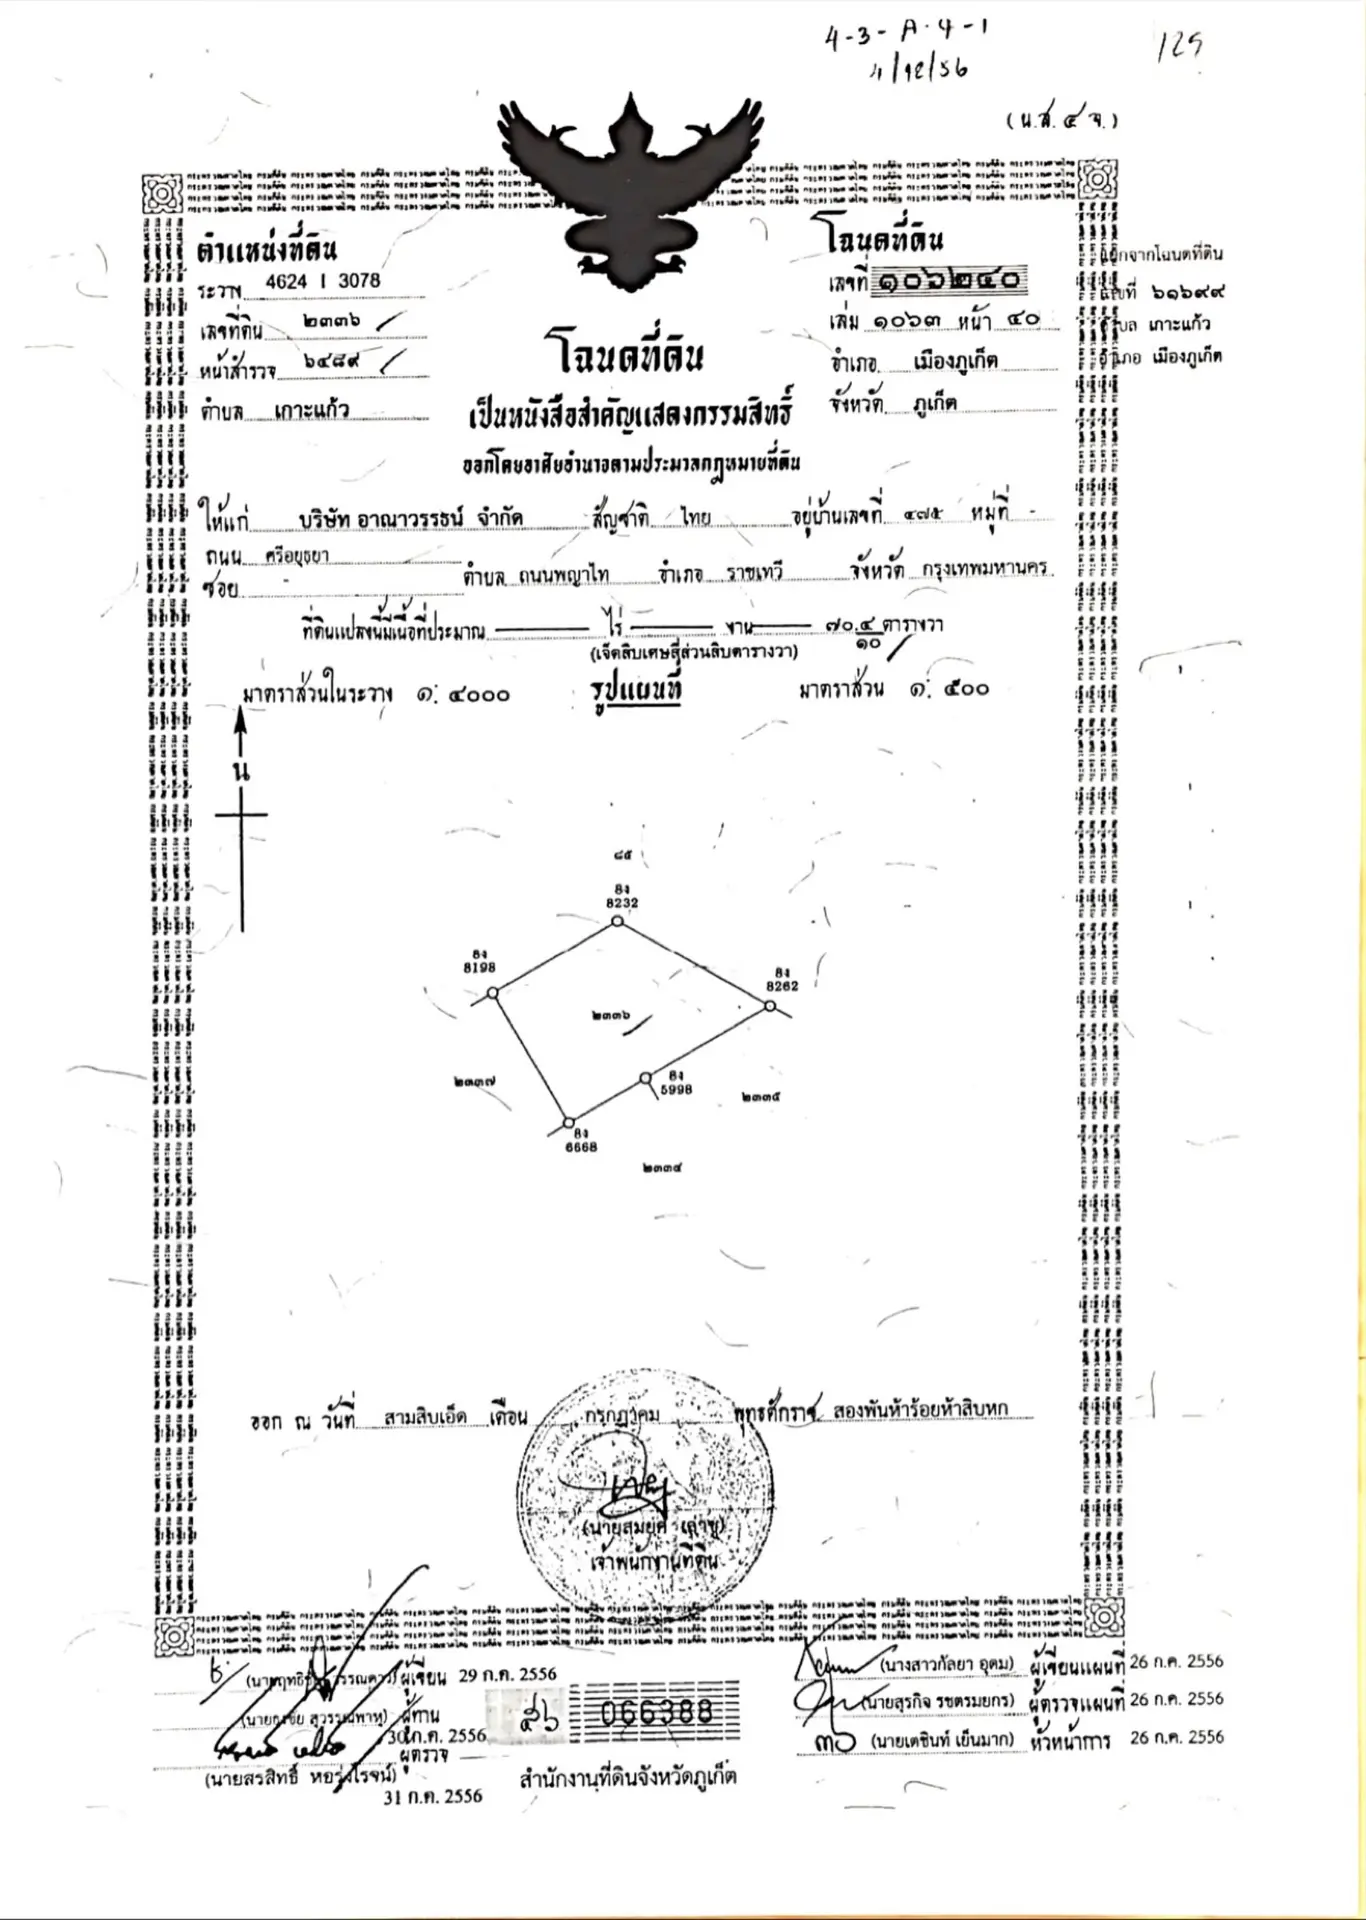 4-3-A-4-1
4/12/56
129
(น.ส.๔ จ.)
ตำแหน่งที่ดิน
ระวาง 4624 I 3078
เลขที่ดิน ๒๓๓๖
หน้าสำรวจ ๖๔๘๙
ตำบล เกาะแก้ว
โฉนดที่ดิน
เลขที่ ๑๐๖๒๔๐
เล่ม ๑๐๖๓ หน้า ๔๐
อำเภอ เมืองภูเก็ต
จังหวัด ภูเก็ต
แยกจากโฉนดที่ดิน
เลขที่ ๖๑๖๙๙
ตำบล เกาะแก้ว
อำเภอ เมืองภูเก็ต
โฉนดที่ดิน
เป็นหนังสือสำคัญแสดงกรรมสิทธิ์
ออกโดยอาศัยอำนาจตามประมวลกฎหมายที่ดิน
ให้แก่ บริษัท อาณาวรรธน์ จำกัด สัญชาติ ไทย อยู่บ้านเลขที่ ๔๗๕ หมู่ที่ -
ถนน ศรีอยุธยา
ซอย - ตำบล ถนนพญาไท อำเภอ ราชเทวี จังหวัด กรุงเทพมหานคร
ที่ดินแปลงนี้มีเนื้อที่ประมาณ ไร่ งาน ๗๐.๔/๑๐ ตารางวา
(เจ็ดสิบเศษสี่ส่วนสิบตารางวา)
มาตราส่วนในระวาง ๑: ๔๐๐๐ รูปแผนที่ มาตราส่วน ๑: ๕๐๐
น
๘๕
8ง
8232
8ง
8198
8ง
8262
๒๓๓๖
๒๓๓๗
8ง
5998
๒๓๓๕
8ง
6668
๒๓๓๔
ออก ณ วันที่ สามสิบเอ็ด เดือน กรกฎาคม พุทธศักราช สองพันห้าร้อยห้าสิบหก
เจ้าพนักงานที่ดิน
ผู้เขียน 29 ก.ค. 2556
ผู้ทาน
30 ก.ค. 2556
ผู้ตรวจ
(นายสรสิทธิ์ หอรุ่งโรจน์)
31 ก.ค. 2556
066388
สำนักงานที่ดินจังหวัดภูเก็ต
(นางสาวกัลยา อุดม) ผู้เขียนแผนที่ 26 ก.ค. 2556
(นายสุรกิจ รชตรมยกร) ผู้ตรวจแผนที่ 26 ก.ค. 2556
(นายเตชินท์ เย็นมาก) หัวหน้าการ 26 ก.ค. 2556